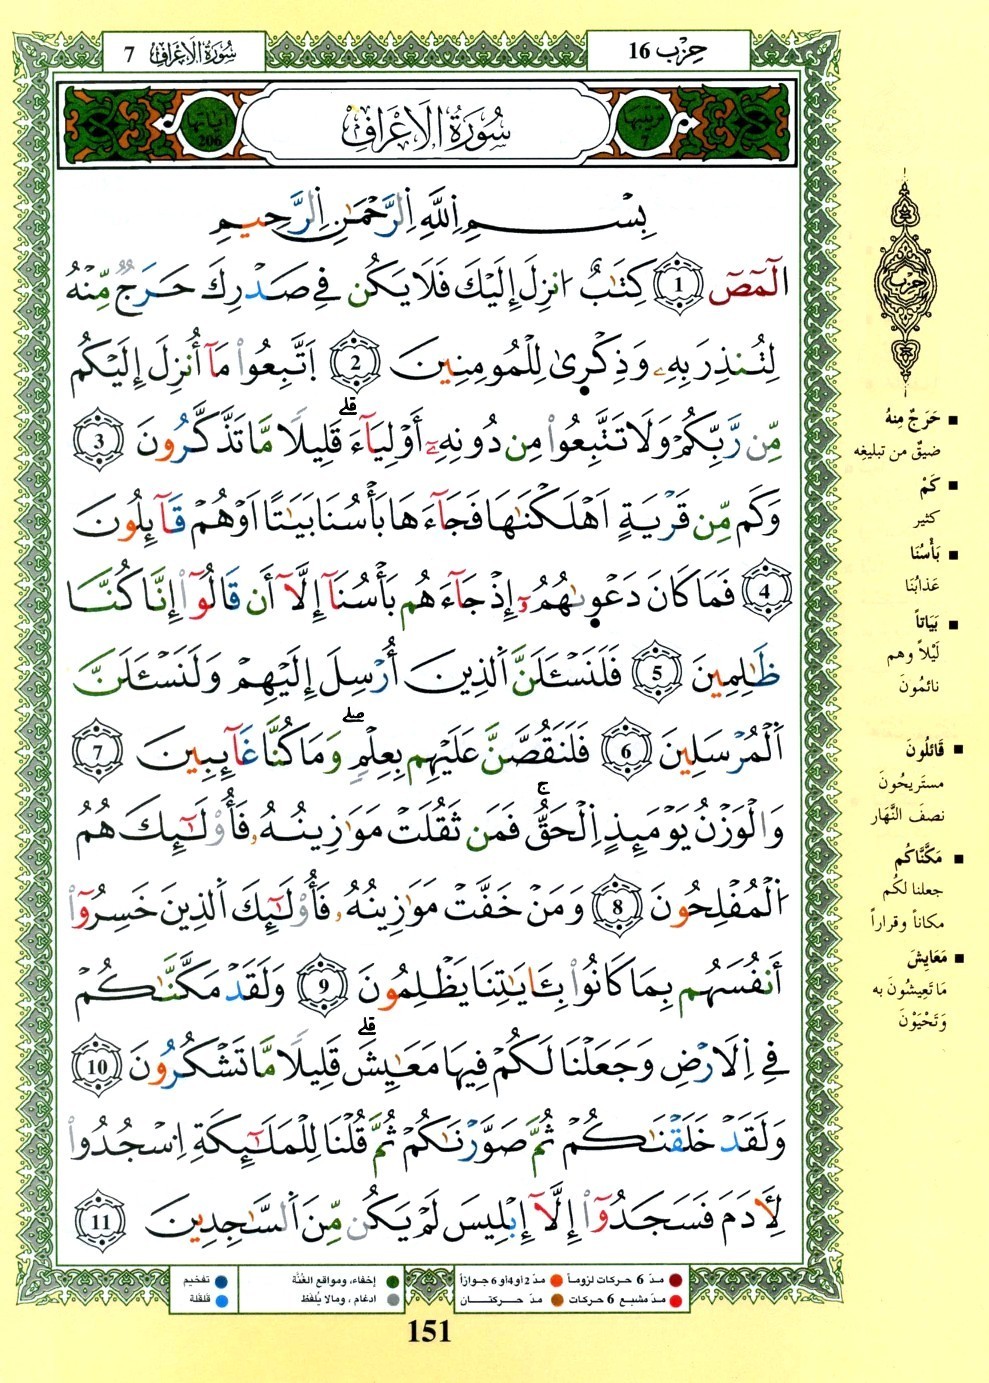 سُورَةُ الَاعْرَافِ 7
حِزْب 16
ترتيبها 7
سُورَةُ الَاعْرَافِ
آياتها 206
بِسْمِ اِللَّهِ اِلرَّحْمَٰنِ اِلرَّحِيمِ
أَلَٓمِّٓصَٓ 1 كِتَٰبٌ ا۟نزِلَ إِلَيْكَ فَلَا يَكُن فِي صَدْرِكَ حَرَجٌ مِّنْهُ
لِتُنذِرَ بِهِۦ وَذِكْرَىٰ لِلْمُومِنِينَ 2 اَتَّبِعُوا۟ مَآ أُنزِلَ إِلَيْكُم
مِّن رَّبِّكُمْ وَلَا تَتَّبِعُوا۟ مِن دُونِهِۦٓ أَوْلِيَآءَ ۗ قَلِيلًا مَّا تَذَّكَّرُونَ 3
وَكَم مِّن قَرْيَةٍ اَهْلَكْنَٰهَا فَجَآءَهَا بَأْسُنَا بَيَٰتًا اَوْ هُمْ قَآئِلُونَ
4 فَمَا كَانَ دَعْوٜىٰهُمُۥٓ إِذْ جَآءَهُم بَأْسُنَآ إِلَّآ أَن قَالُوٓا۟ إِنَّا كُنَّا
ظَٰلِمِينَ 5 فَلَنَسْـَٔلَنَّ اَلذِينَ أُرْسِلَ إِلَيْهِمْ وَلَنَسْـَٔلَنَّ
اَلْمُرْسَلِينَ 6 فَلَنَقُصَّنَّ عَلَيْهِم بِعِلْمٍ ۖ وَمَا كُنَّا غَآئِبِينَ 7
وَالْوَزْنُ يَوْمَئِذٍ اِلْحَقُّ ۚ فَمَن ثَقُلَتْ مَوَٰزِينُهُۥ فَأُو۟لَٰٓئِكَ هُمُ
اُلْمُفْلِحُونَ 8 وَمَنْ خَفَّتْ مَوَٰزِينُهُۥ فَأُو۟لَٰٓئِكَ اَلذِينَ خَسِرُوٓا۟
أَنفُسَهُم بِمَا كَانُوا۟ بِـَٔايَٰتِنَا يَظْلِمُونَ 9 وَلَقَدْ مَكَّنَّٰكُمْ
فِي اِلَارْضِ وَجَعَلْنَا لَكُمْ فِيهَا مَعَٰيِشَ ۗ قَلِيلًا مَّا تَشْكُرُونَ 10
وَلَقَدْ خَلَقْنَٰكُمْ ثُمَّ صَوَّرْنَٰكُمْ ثُمَّ قُلْنَا لِلْمَلَٰٓئِكَةِ اِسْجُدُوا۟
لِأٓدَمَ فَسَجَدُوٓا۟ إِلَّآ إِبْلِيسَ لَمْ يَكُن مِّنَ اَلسَّٰجِدِينَ 11
حزب
حَرَجٌ مِنهُ
ضيقٌ من تبليغِه
كَمْ
كثير
بَأْسُنَا
عَذابُنَا
بَيَاتاً
لَيْلاً وهم
نائمُونَ
قَائلُونَ
مستَريحُونَ
نصفَ النَّهَار
مَكَّنَّاكُم
جعلنا لكُم
مكاناً وقراراً
مَعَايِشَ
مَا تَعِيشُونَ به
وَتَحْيَوْنَ
مدّ 6 حركات لزوماً
مدّ 2 أو 4 أو 6 جوازاً
إخفاء، ومواقع الغُنَّة
تفخيم
مدّ مشبع 6 حركات
مدّ حركتان
ادغام، ومالا يُلفظ
قلقلة
151